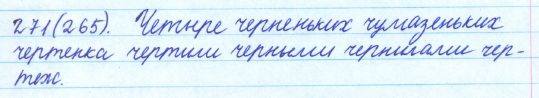 271(265). Четыре черненьких чумазеньких
чертенка чертили черными чернилами чер-
теж.